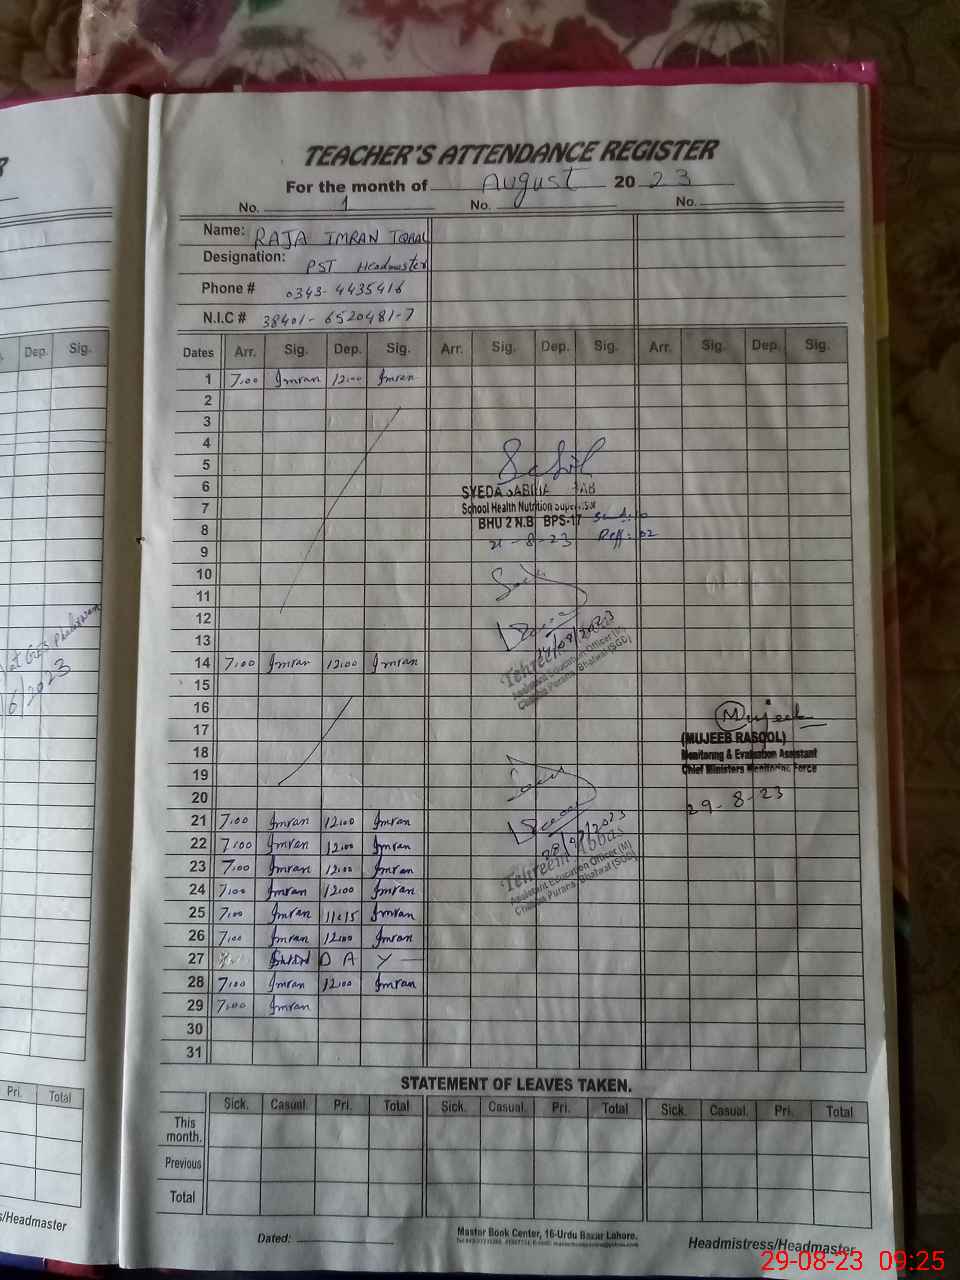 TEACHER'S ATTENDANCE REGISTER
For the month of August 2023
No. 1 No. No.
Name: RAJA IMRAN IQBAL
Designation: PST Headmaster
Phone # 0343-4435416
N.I.C # 38401-6520481-7
Dep. Sig.
Dates Arr. Sig. Dep. Sig. Arr. Sig. Dep. Sig. Arr. Sig. Dep. Sig.
1 7:00 Imran 12:00 Imran
2
3
4
5
6
SYEDA
7
School Health Nutrition
8
BHU 2 N.B BPS-17
9
21-8-23
10
11
12
13
14 7:00 Imran 12:00 Imran
Tehreem
Assistant Education Officer (M)
Purana, Bhalwal (SGD)
15
16
Mujeeb
17
(MUJEEB RASOOL)
18
Monitoring & Evaluation Assistant
19
Chief Ministers Monitoring Force
20
29-8-23
21 7:00 Imran 12:00 Imran
22 7:00 Imran 12:00 Imran
23 7:00 Imran 12:00 Imran
Tehreem Abbas
Assistant Education Officer (M)
Purana, Bhalwal (SGD)
24 7:00 Imran 12:00 Imran
25 7:00 Imran 11:15 Imran
26 7:00 Imran 12:00 Imran
27 D A Y
28 7:00 Imran 12:00 Imran
29 7:00 Imran
30
31
STATEMENT OF LEAVES TAKEN.
Pri. Total
Sick. Casual. Pri. Total Sick. Casual. Pri. Total Sick. Casual. Pri. Total
This month.
Previous
Total
s/Headmaster
Dated:
Master Book Center, 16-Urdu Bazar Lahore.
Headmistress/Headmaster
29-08-23 09:25